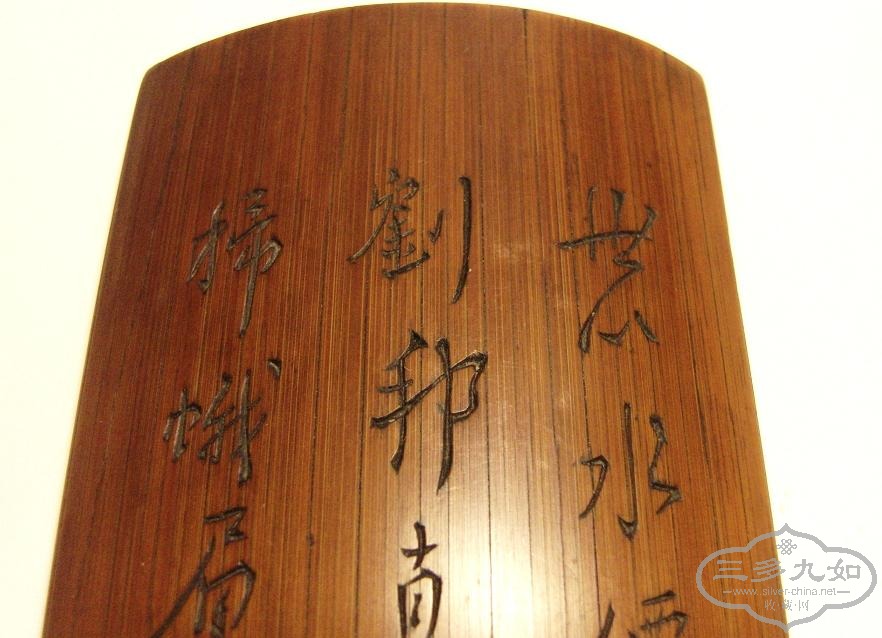 水
劉邦直
掃蛾眉
三多九如
www.silver-china.net
收·藏·网